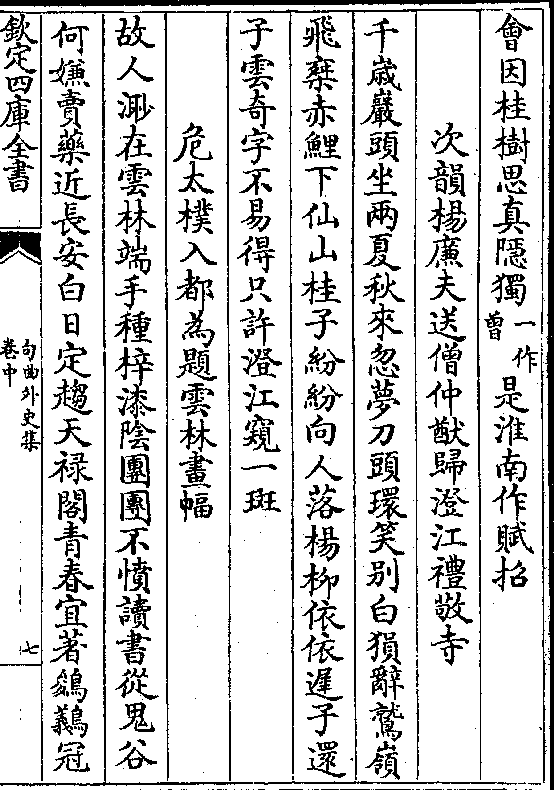 會因桂樹思真隱獨一作曾是淮南作賦招
次韻楊廉夫送僧仲猷歸澄江禮敬寺
千歳巖頭坐兩夏秋來忽夢刀頭環笑别白猨辭鷲嶺
飛棄赤鯉下仙山桂子紛紛向人落楊柳依依遲子還
子雲奇字不易得只許澄江窺一斑
危太樸入都為題雲林畫幅
故人渺在雲林端手種梓漆陰團團不憤讀書從鬼谷
何嫌賣藥近長安白日定趨天禄閣青春宜著鵔鸃冠
欽定四庫全書
句曲外史集
卷中
七